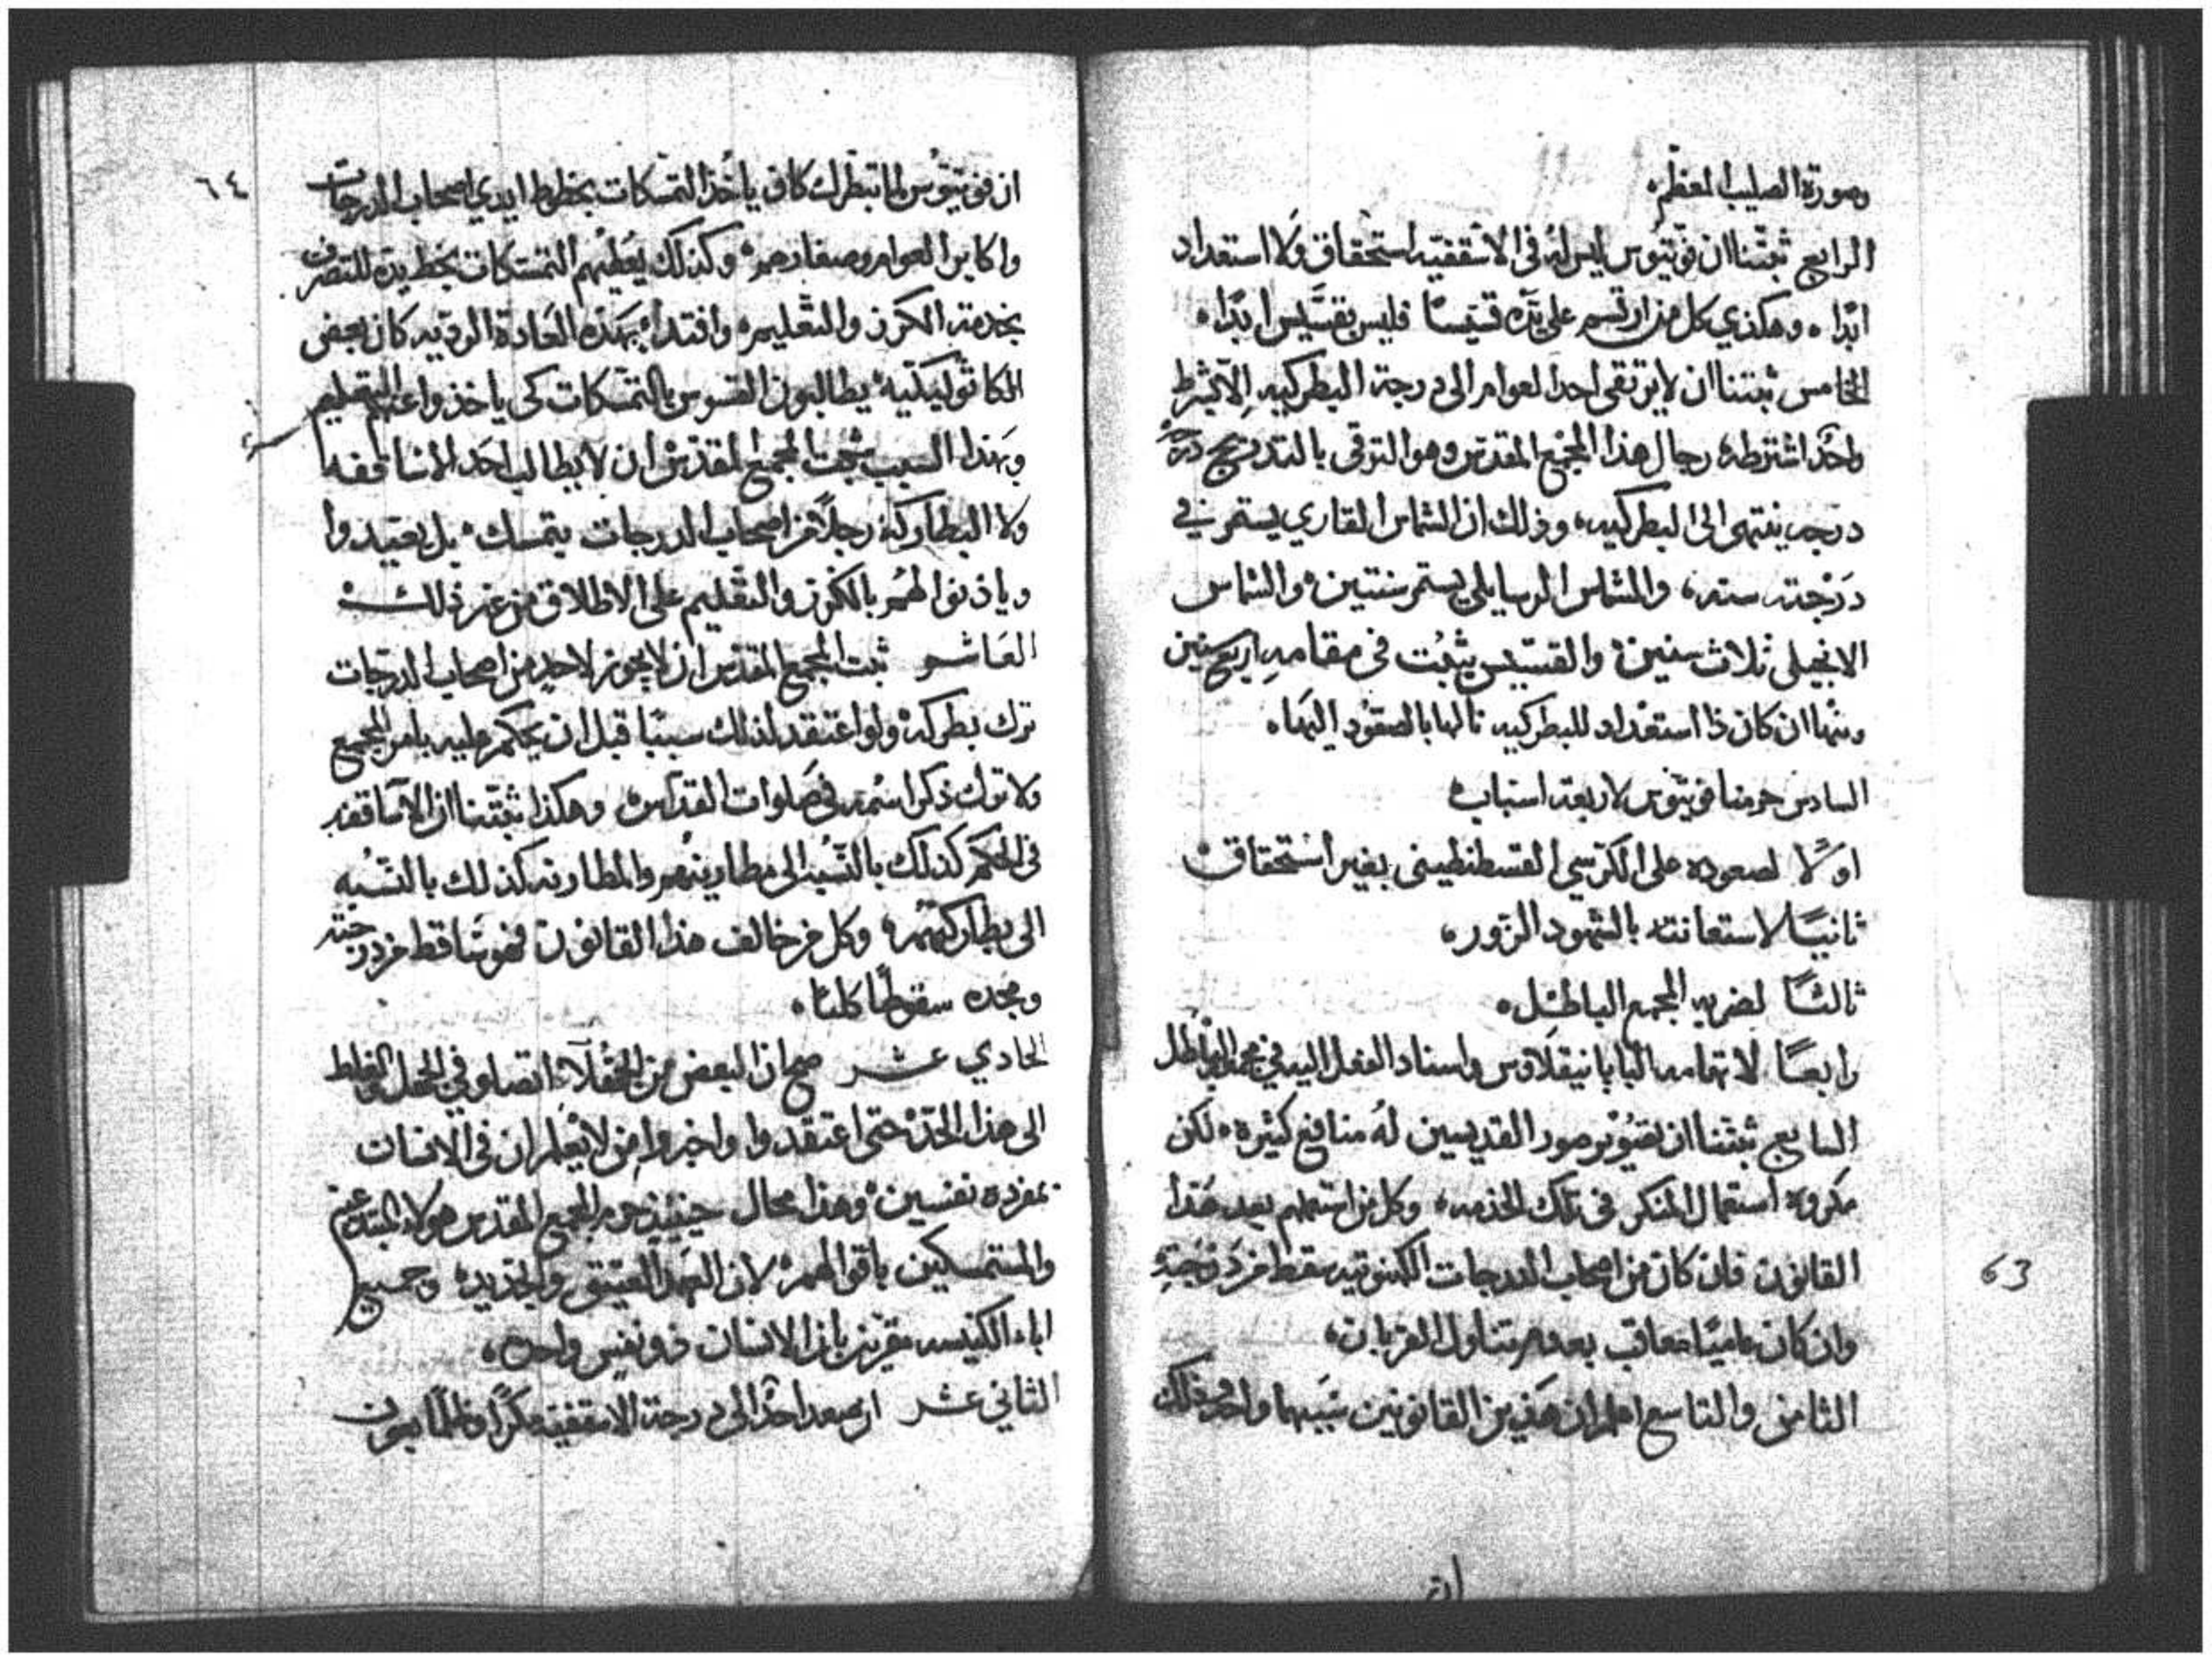 وصورة الصليب المعظم
الرابع ثبتنا ان فوتيوس ليس له في الاسقفيه استحقاق ولا استعداد
ابدا وهكذي كل من ارتسم على يده قسيسا فليس بقسيس ابدا
الخامس ثبتنا ان لا يرتقي احد العوام الى درجة البطركيه الا بشرط
واحد اشترطه رجال هذا المجمع المقدس وهو الترقي بالتدريج درجه
درجه ينتهي الى البطركيه وذلك ان الشماس القاري يستمر في
درجته سنه والشماس الرسايلي يستمر سنتين والشماس
الانجيلي ثلاث سنين والقسيس يثبت في مقامه اربع سنين
ومنها ان كان ذا استعداد للبطركيه نالها بالصعود اليها
السادس حرمنا فوتيوس لاربعة اسباب
اولا لصعوده على الكرسي القسطنطيني بغير استحقاق
ثانيا لاستعانته بالشهود الزور
ثالثا لضربه المجمع الباطل
رابعا لاتهامه البابا نيقلاوس واسناد الفعل اليه في مجمعه الباطل
السابع ثبتنا ان تصوير صور القديسين له منافع كثيره لكن
مكروه استعمال المنكر في تلك الخدمه وكل من استعملهم بعد هذا
القانون فان كان من اصحاب الدرجات الكهنوتيه سقط من درجته
وان كان عاميا معاقب بعدم تناول القربان
الثامن والتاسع اعلم ان هذين القانونين سببهما واحد وذلك
ان
63
٦٤
ان فوتيوس لما تبطرك كان ياخذ التمسكات بخطوط ايدي اصحاب الدرجات
واكابر العوام وصغارهم وكذلك يعطيهم التمسكات بخط يده للتصرف
بخدمة الكرز والتعليم واقتداء بهذه العادة الرديه كان بعض
الكاثوليكيه يطالبون القسوس بالتمسكات كي ياخذوا عنهم التعليم
وبهذا السبب ثبت المجمع المقدس ان لا يطالب احد الاساقفه
ولا البطاركه رجلا من اصحاب الدرجات بتمسك بل يعتمدوا
وياذنوا لهم بالكرز والتعليم على الاطلاق من غير ذلك
العاشر ثبت المجمع المقدس ان لا يجوز لاحد من اصحاب الدرجات
ترك بطركه ولو اعتقد لذلك سببا قبل ان يحكم عليه بامر المجمع
ولا ترك ذكر اسمه في صلوات القداس وهكذا ثبتنا ان الاساقفه
في الحكم كذلك بالنسبه الى مطارينهم والمطارنه كذلك بالنسبه
الى بطاركتهم وكل من خالف هذا القانون فهو ساقط من درجته
ومجده سقوطا كليا
الحادي عشر صح ان البعض من الجهلاء اتصلوا في الجهل والغلط
الى هذا الحد حتى اعتقدوا واخبروا من لا يعلم ان في الانسان
بمفرده نفسين وهذا محال حينيذ حرم المجمع المقدس هولاء المبتدعين
والمتمسكين باقوالهم لان العهد العتيق والجديد وجميع
اباء الكنيسه مقرين بان الانسان ذو نفس واحده
الثاني عشر ان صعد احد الى درجة الاسقفيه مكرا وظلما بعون